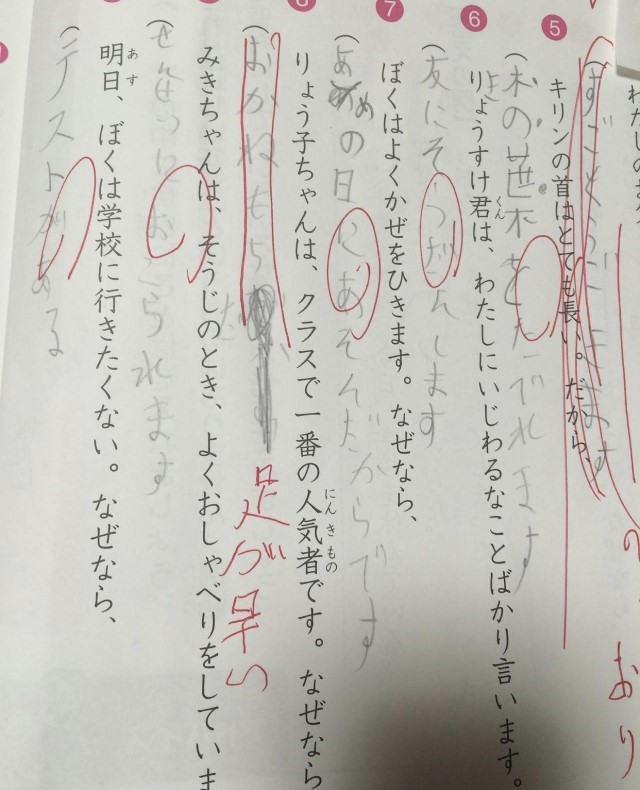 わたしの
すごくうごきます
おり
⑤
キリンの首はとても長い。だから、
(木の葉をたべれます
⑥
りょうすけ君は、わたしにいじわるなことばかり言います。
くん
(友にそうだんします
⑦
ぼくはよくかぜをひきます。なぜなら、
(あめの日にあそんだからです
りょう子ちゃんは、クラスで一番の人気者です。なぜなら
にんきもの
(おかねもち
足が早い
みきちゃんは、そうじのとき、よくおしゃべりをしていま
おこられます
明日、ぼくは学校に行きたくない。なぜなら、
あす
(テストがある